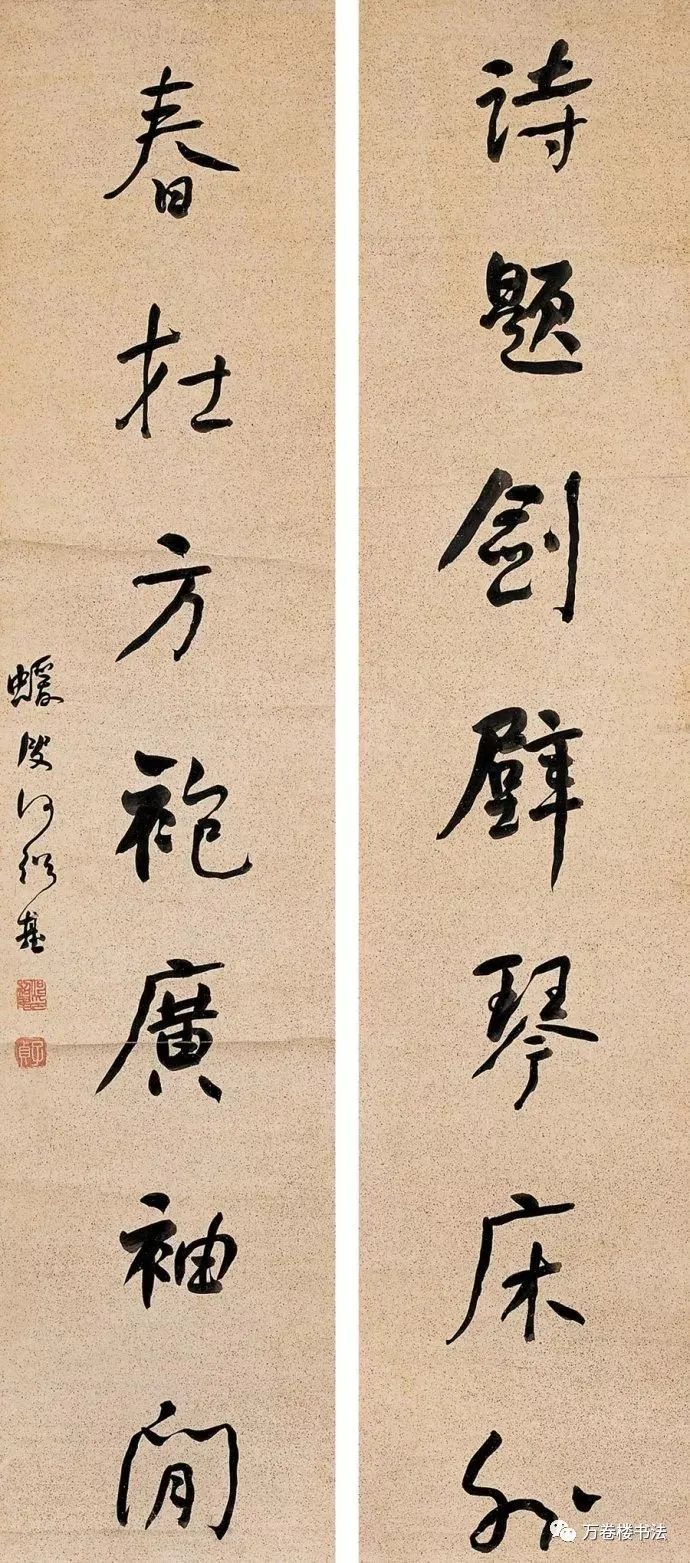 詩題劍壁琴床外
春在方袍廣袖間
蝯叟何紹基
子貞
万卷楼书法